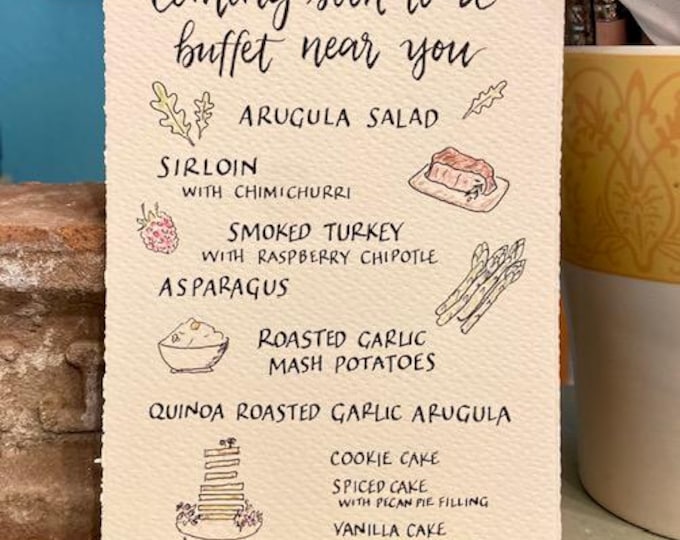 coming soon to a
buffet near you
ARUGULA SALAD
SIRLOIN
WITH CHIMICHURRI
SMOKED TURKEY
WITH RASPBERRY CHIPOTLE
ASPARAGUS
ROASTED GARLIC
MASH POTATOES
QUINOA ROASTED GARLIC ARUGULA
COOKIE CAKE
SPICED CAKE
WITH PECAN PIE FILLING
VANILLA CAKE